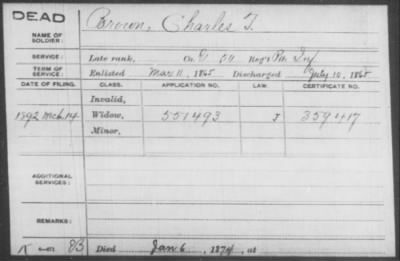 DEAD
NAME OF SOLDIER: Brown, Charles T.
SERVICE: Late rank, Co. G Reg't Inf
TERM OF SERVICE: Enlisted Mar 11, 1865 Discharged July 10, 1865
DATE OF FILING. CLASS. APPLICATION NO. LAW. CERTIFICATE NO.
Invalid,
1892 Mch 14 Widow, 551493 359417
Minor,
ADDITIONAL SERVICES:
REMARKS:
Died Jan 6, 1874, at